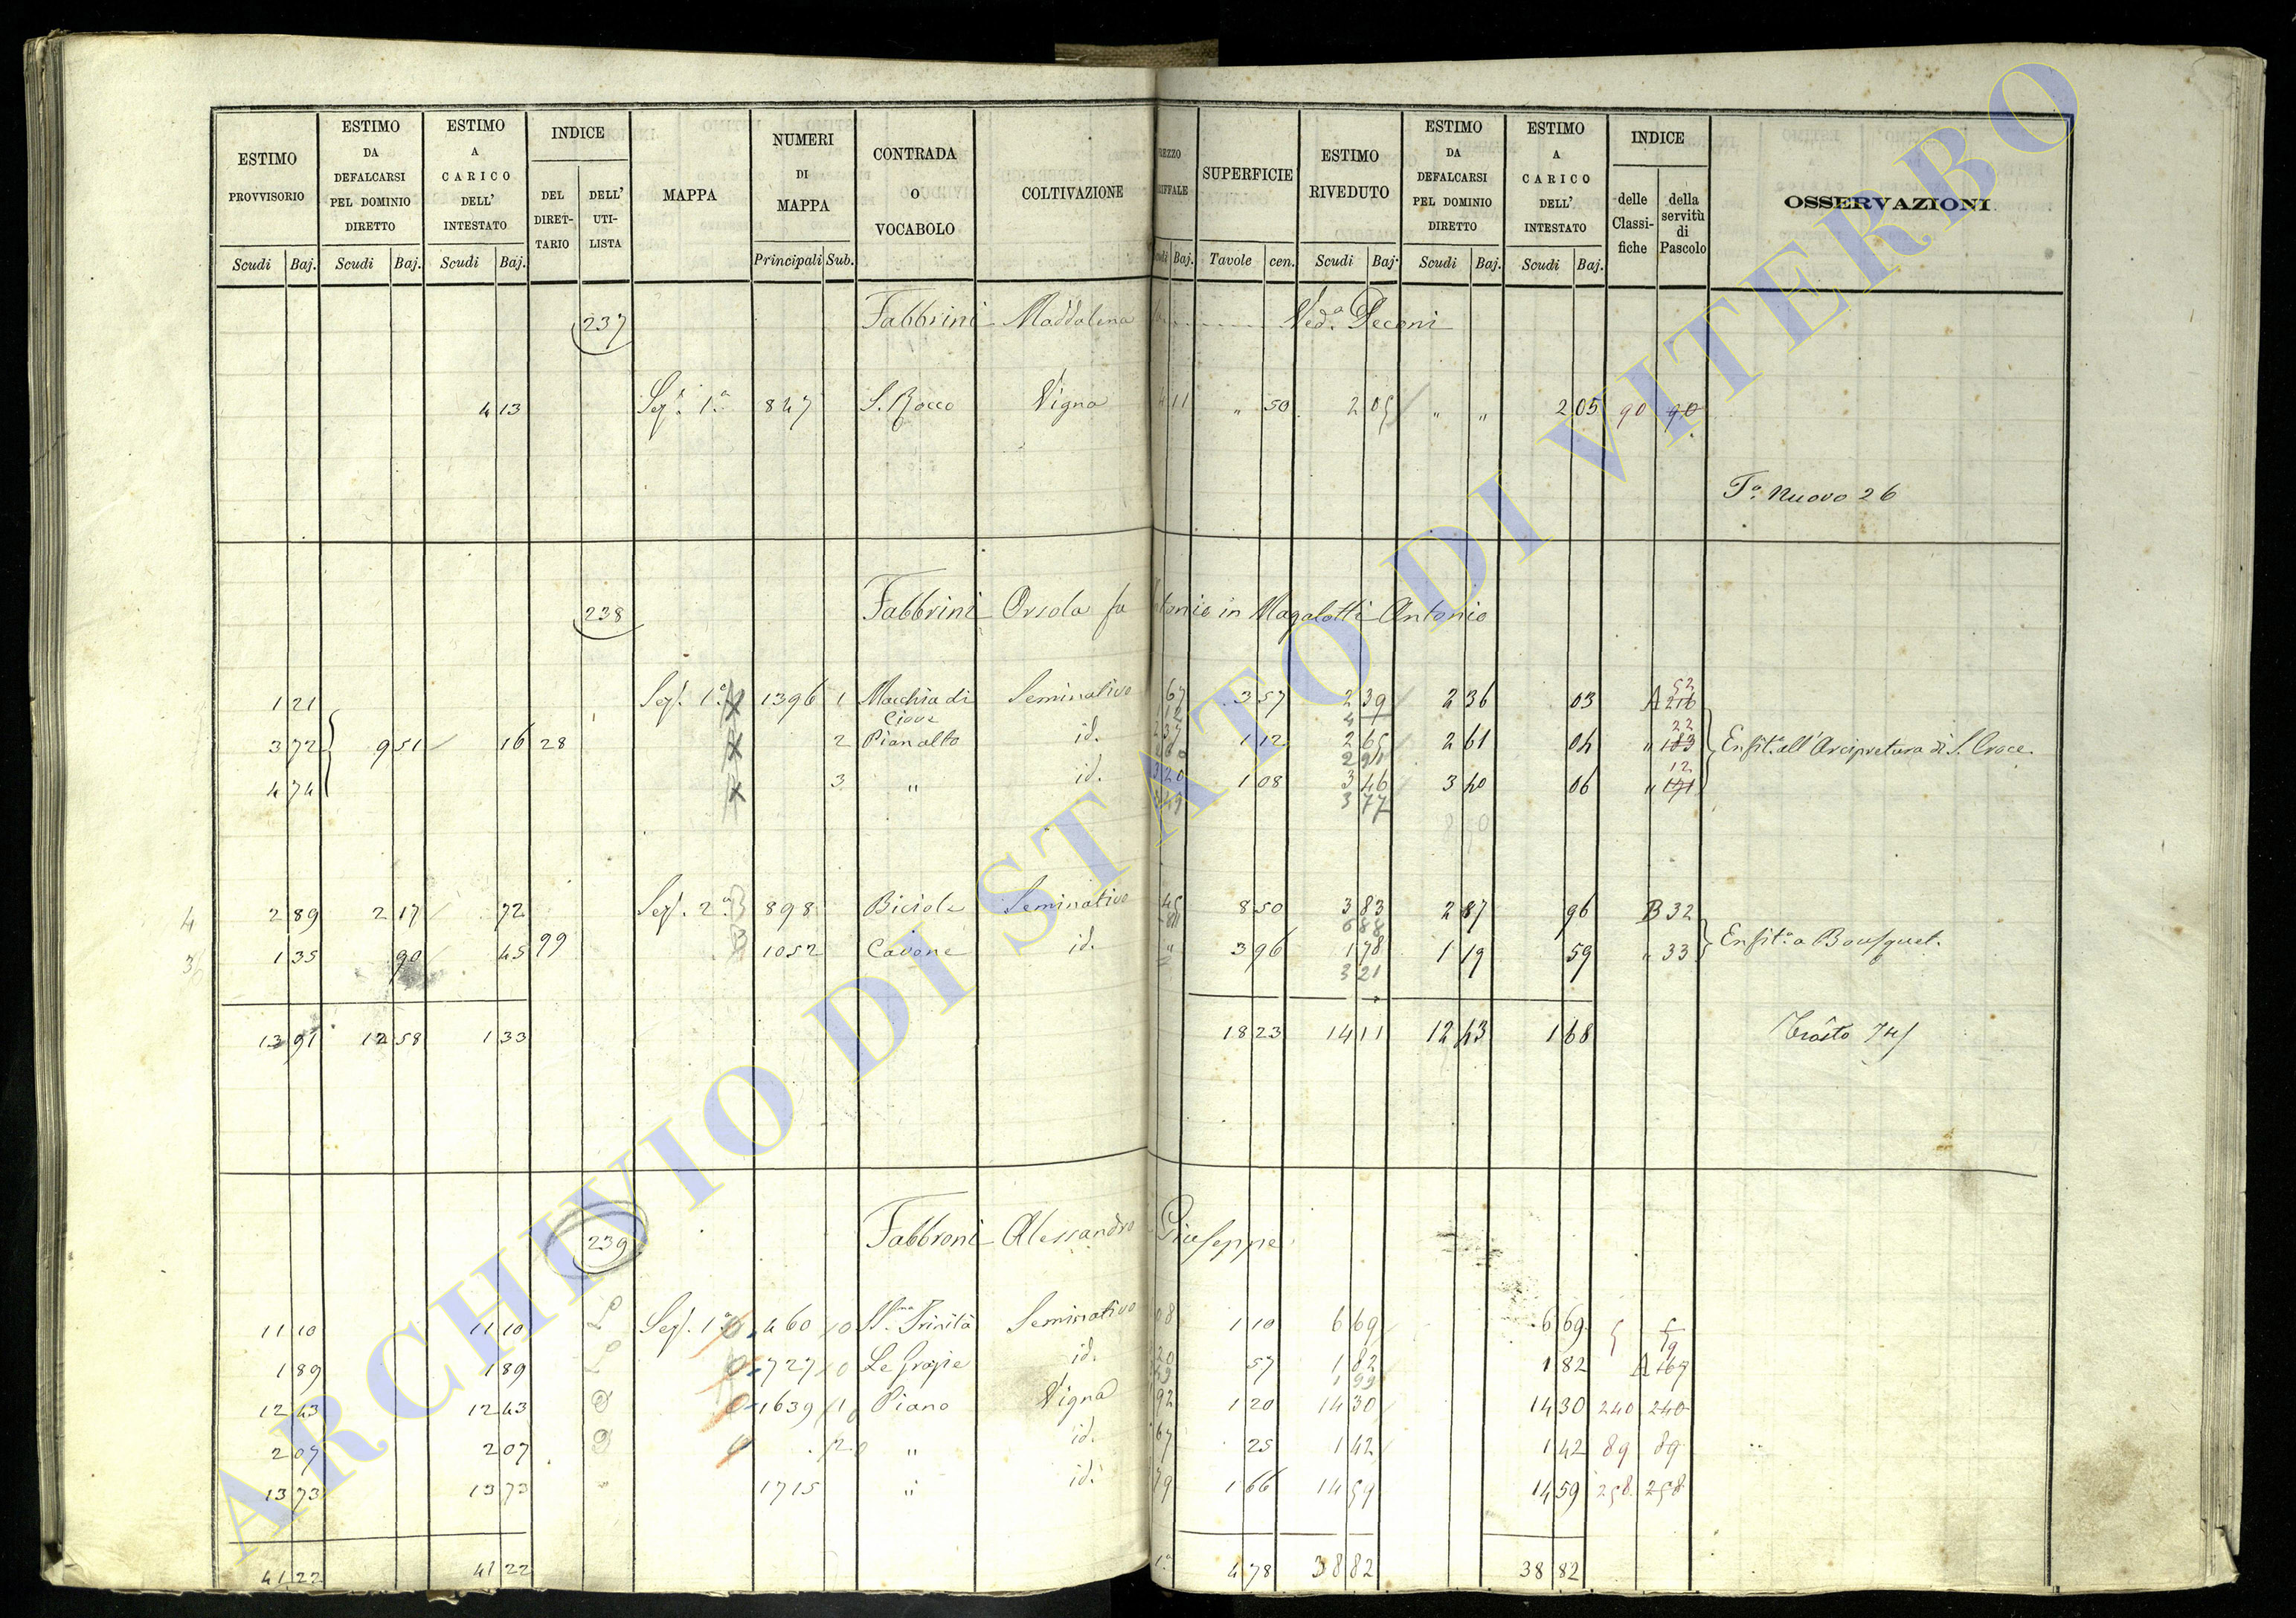 ESTIMO PROVVISORIO ESTIMO DA DEFALCARSI PEL DOMINIO DIRETTO ESTIMO A CARICO DELL' INTESTATO INDICE DEL DIRET-TARIO DELL' UTI-LISTA MAPPA NUMERI DI MAPPA CONTRADA O VOCABOLO COLTIVAZIONE SUPERFICIE ESTIMO RIVEDUTO ESTIMO DA DEFALCARSI PEL DOMINIO DIRETTO ESTIMO A CARICO DELL' INTESTATO INDICE delle Classi-fiche della servitù di Pascolo OSSERVAZIONI
Scudi Baj. Scudi Baj. Scudi Baj. Principali Sub. Baj. Tavole cen. Scudi Baj. Scudi Baj. Scudi Baj.
237 Fabbrini Maddalena Ved.a Peconi
4 13 Sez. 1.a 847 S. Rocco Vigna 11 " 50 2 05 " " 2 05 90 90
T.o Nuovo 26
238 Fabbrini Orsola fu Antonio in Magalotti Antonio
1 21 Sez. 1.a 1396 1 Macchia di Giove Seminativo 67 3 57 2 39 2 36 03 A 216 52
3 72 9 51 16 28 2 Pianalto id. 1 12 2 65 2 61 04 " 183 22 Enfit.a all'Arcipretura di S. Croce.
4 74 3 " id. 20 1 08 3 46 3 40 06 " 191 12
3 77
4 2 89 2 17 72 Sez. 2.a 898 Biciole Seminativo 45 8 50 3 83 2 87 96 B 32
6 88
1 35 90 45 99 1052 Cavone id. " 3 96 1 78 1 19 59 " 33 Enfit.a a Bousquet.
3 21
13 91 12 58 1 33 18 23 14 11 12 43 1 68
239 Fabbroni Alessandro Giuseppe
11 10 11 10 Sez. 1.a 460 SS.ma Trinità Seminativo 08 1 10 6 69 6 69 5 5
1 89 1 89 727 Le Grazie id. 20 57 1 82 1 82 A 167 59
1 99
12 43 12 43 1639 1 Piano Vigna 92 1 20 14 30 14 30 240 240
2 07 2 07 2 " id. 67 25 1 42 1 42 89 89
13 73 13 73 1715 " id. 79 1 66 14 59 14 59 258 258
41 22 41 22 4 78 38 82 38 82
ARCHIVIO DI STATO DI VITERBO